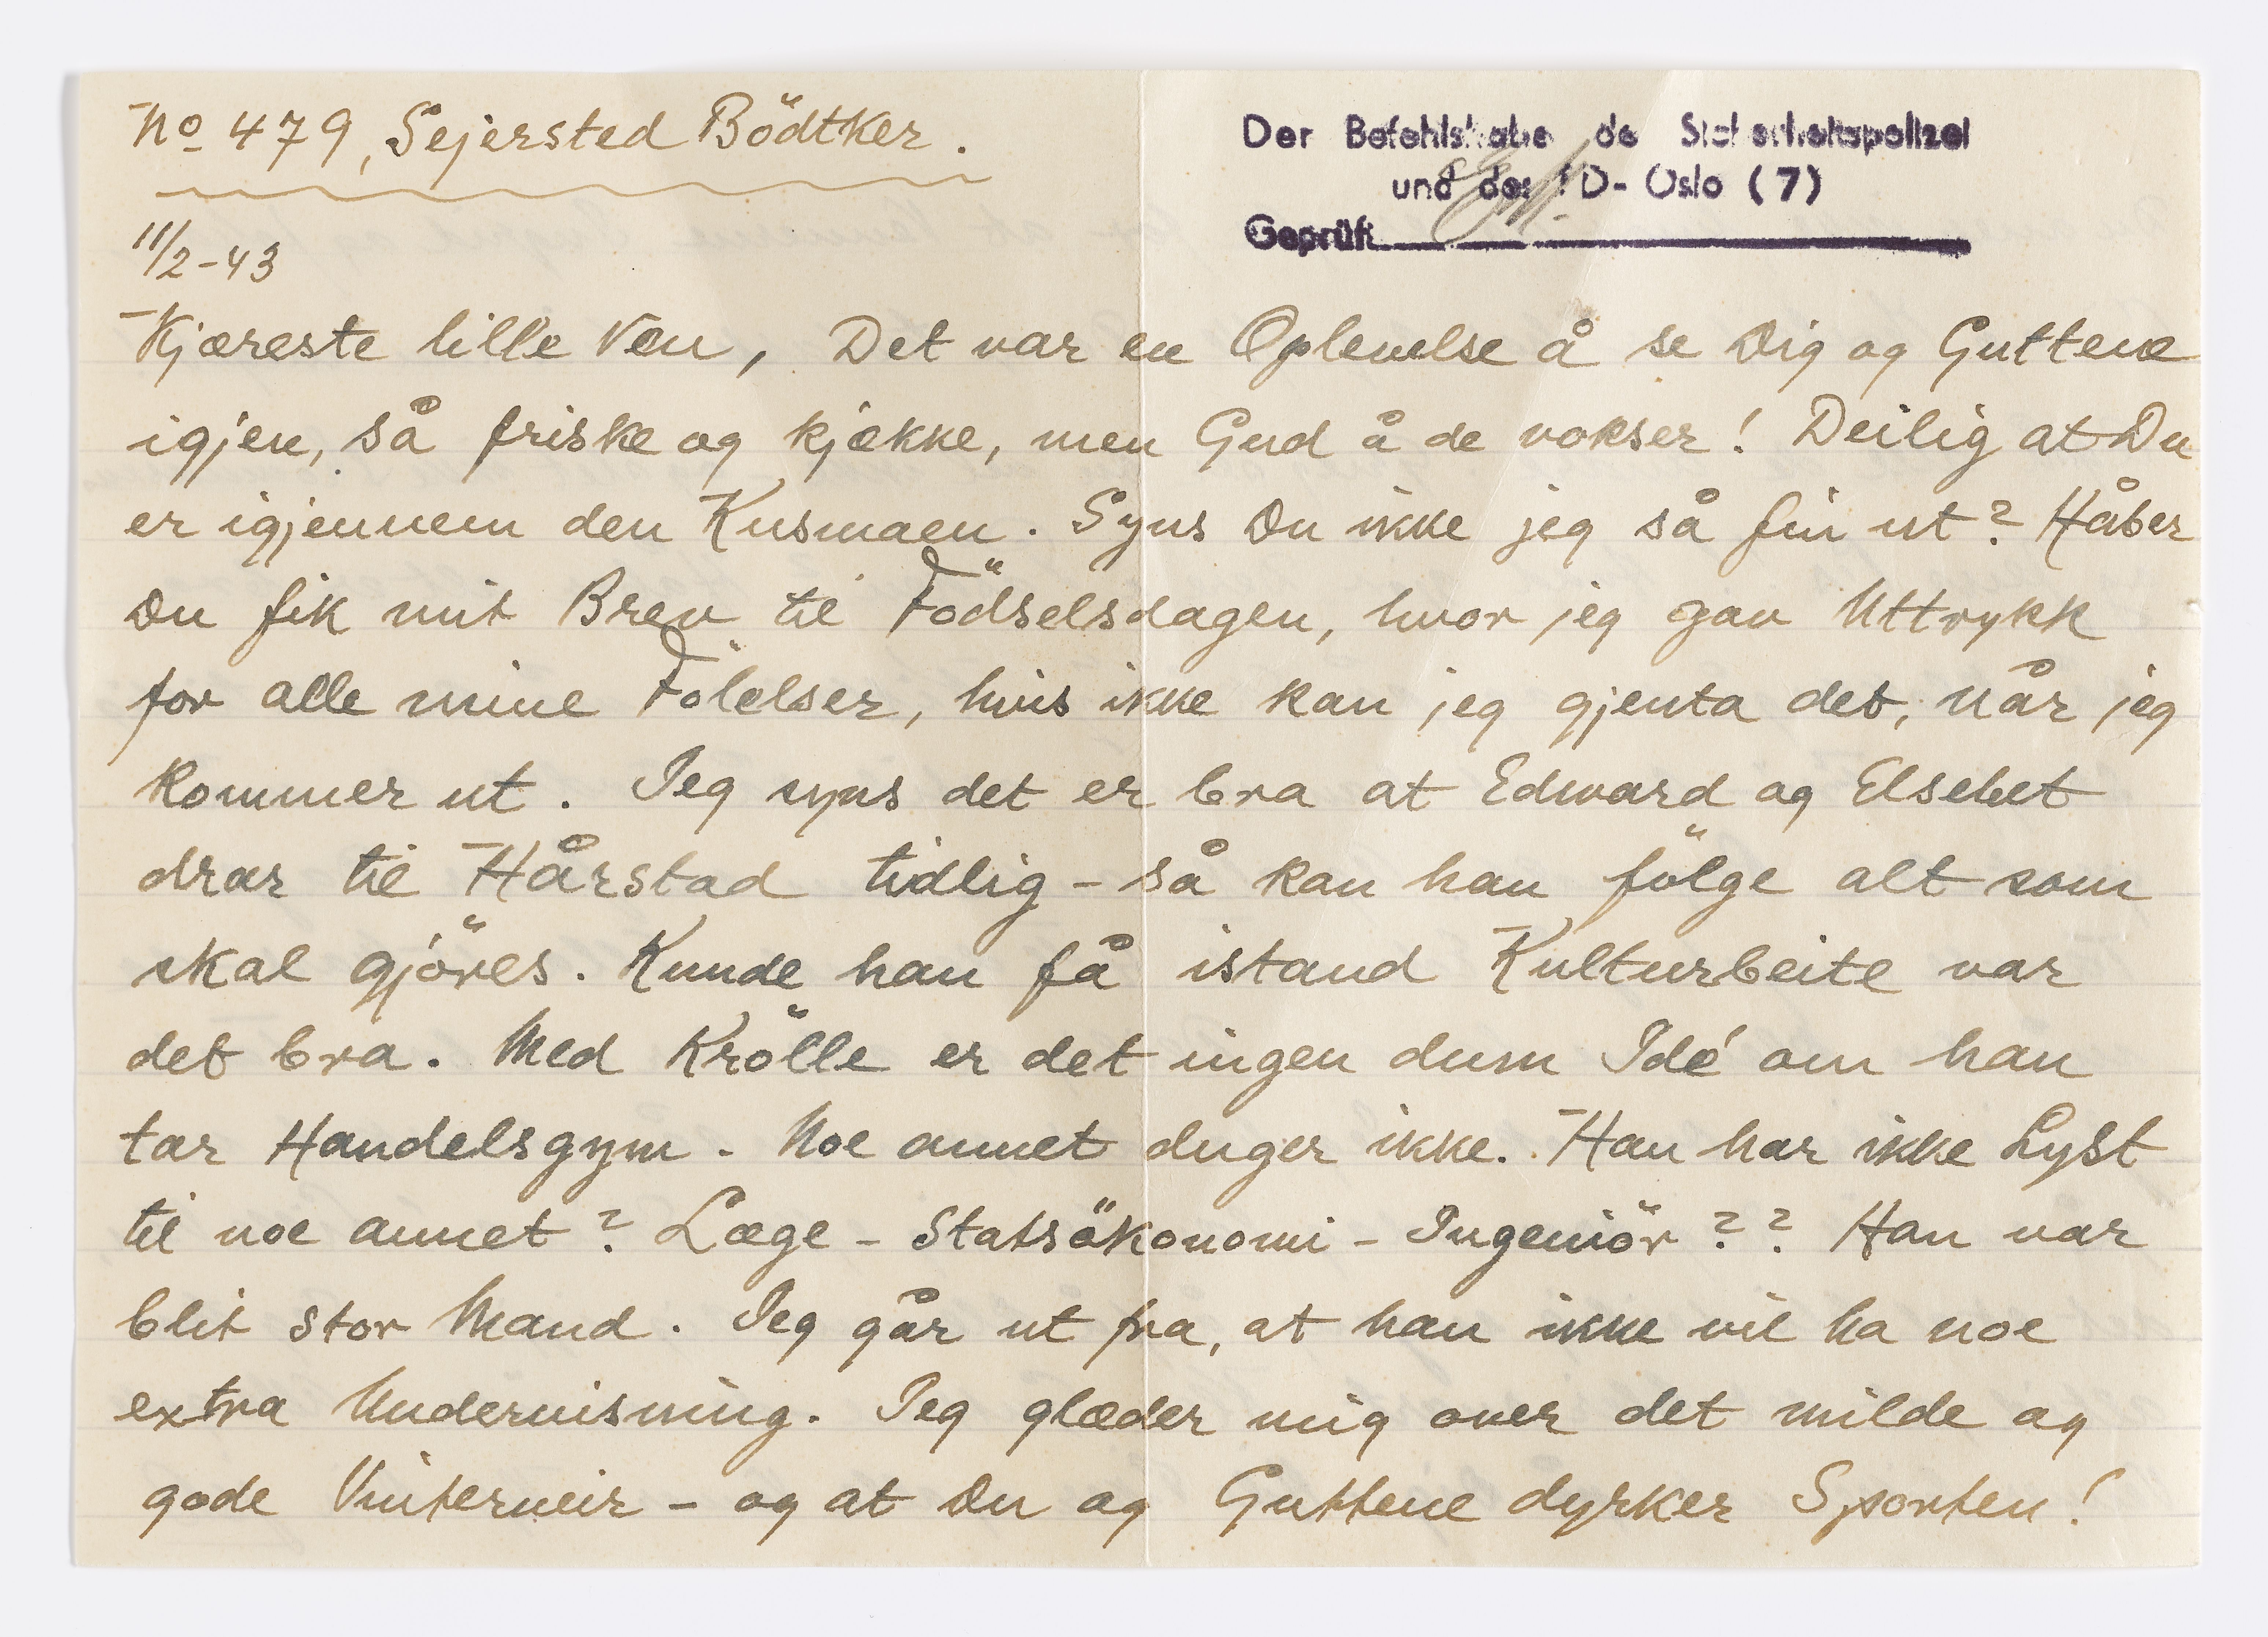 No 479, Sejersted Bödtker.
Der Befehlshaber der Sicherheitspolizei
und des SD - Oslo (7)
Geprüft
11/2-43
Kjæreste lille Ven, Det var en Oplevelse å se Dig og Guttene
igjen, så friske og kjække, men Gud å de vokser! Deilig at Du
er igjennem den Kusmaen. Syns Du ikke jeg så fin ut? Håber
Du fik mit Brev til Födselsdagen, hvor jeg gav Uttrykk
for alle mine Fölelser, hvis ikke kan jeg gjenta det, når jeg
kommer ut. Jeg syns det er bra at Edward og Elsebet
drar til Hårstad tidlig - så kan han fölge alt som
skal gjöres. Kunde han få istand Kulturbeite var
det bra. Med Krölle er det ingen dum Idé om han
tar Handelsgym. Noe annet duger ikke. Han har ikke Lyst
til noe annet? Læge - Statsökonomi - Ingeniör?? Han var
blit stor Mand. Jeg går ut fra, at han ikke vil ha noe
extra Undervisning. Jeg glæder mig over det milde og
gode Vinterveir - og at Du og Guttene dyrker Sporten!